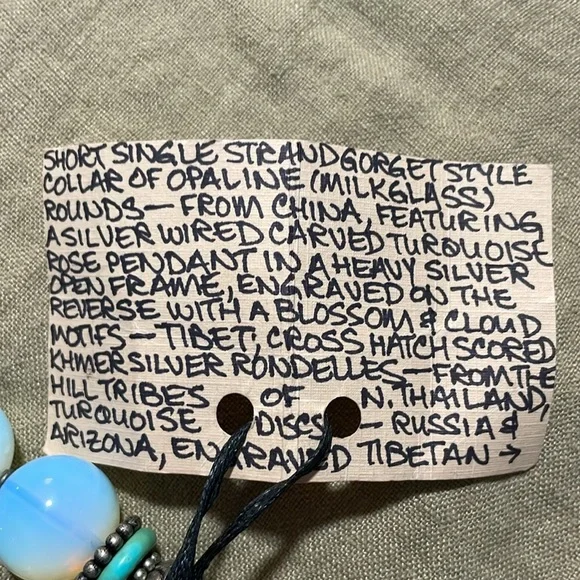 SHORT SINGLE STRAND GORGET STYLE
COLLAR OF OPALINE (MILKGLASS)
ROUNDS — FROM CHINA, FEATURING
A SILVER WIRED CARVED TURQUOISE
ROSE PENDANT IN A HEAVY SILVER
OPEN FRAME, ENGRAVED ON THE
REVERSE WITH A BLOSSOM & CLOUD
MOTIFS — TIBET, CROSS HATCH SCORED
KHMER SILVER RONDELLES — FROM THE
HILL TRIBES OF N. THAILAND,
TURQUOISE DISCS — RUSSIA &
ARIZONA, ENGRAVED TIBETAN →